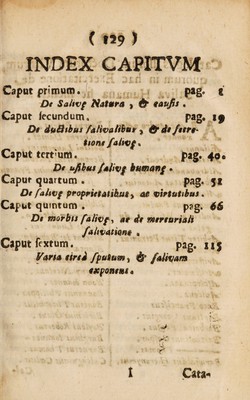 ( 129 )
INDEX CAPITVM
Caput primum. pag. 1
De Salivę Natura, & causis.
Caput secundum. pag. 19
De ductibus salivalibus, & de secre-
tione salivę.
Caput tertium. pag. 40.
De usibus salivę humanę.
Caput quartum. pag. 52
De salivę proprietatibus, ac virtutibus.
Caput quintum. pag. 66
De morbis salivę, ac de mercuriali
salivatione.
Caput sextum. pag. 115
Varia circà sputum, & salivam
exponens.
I Cata-